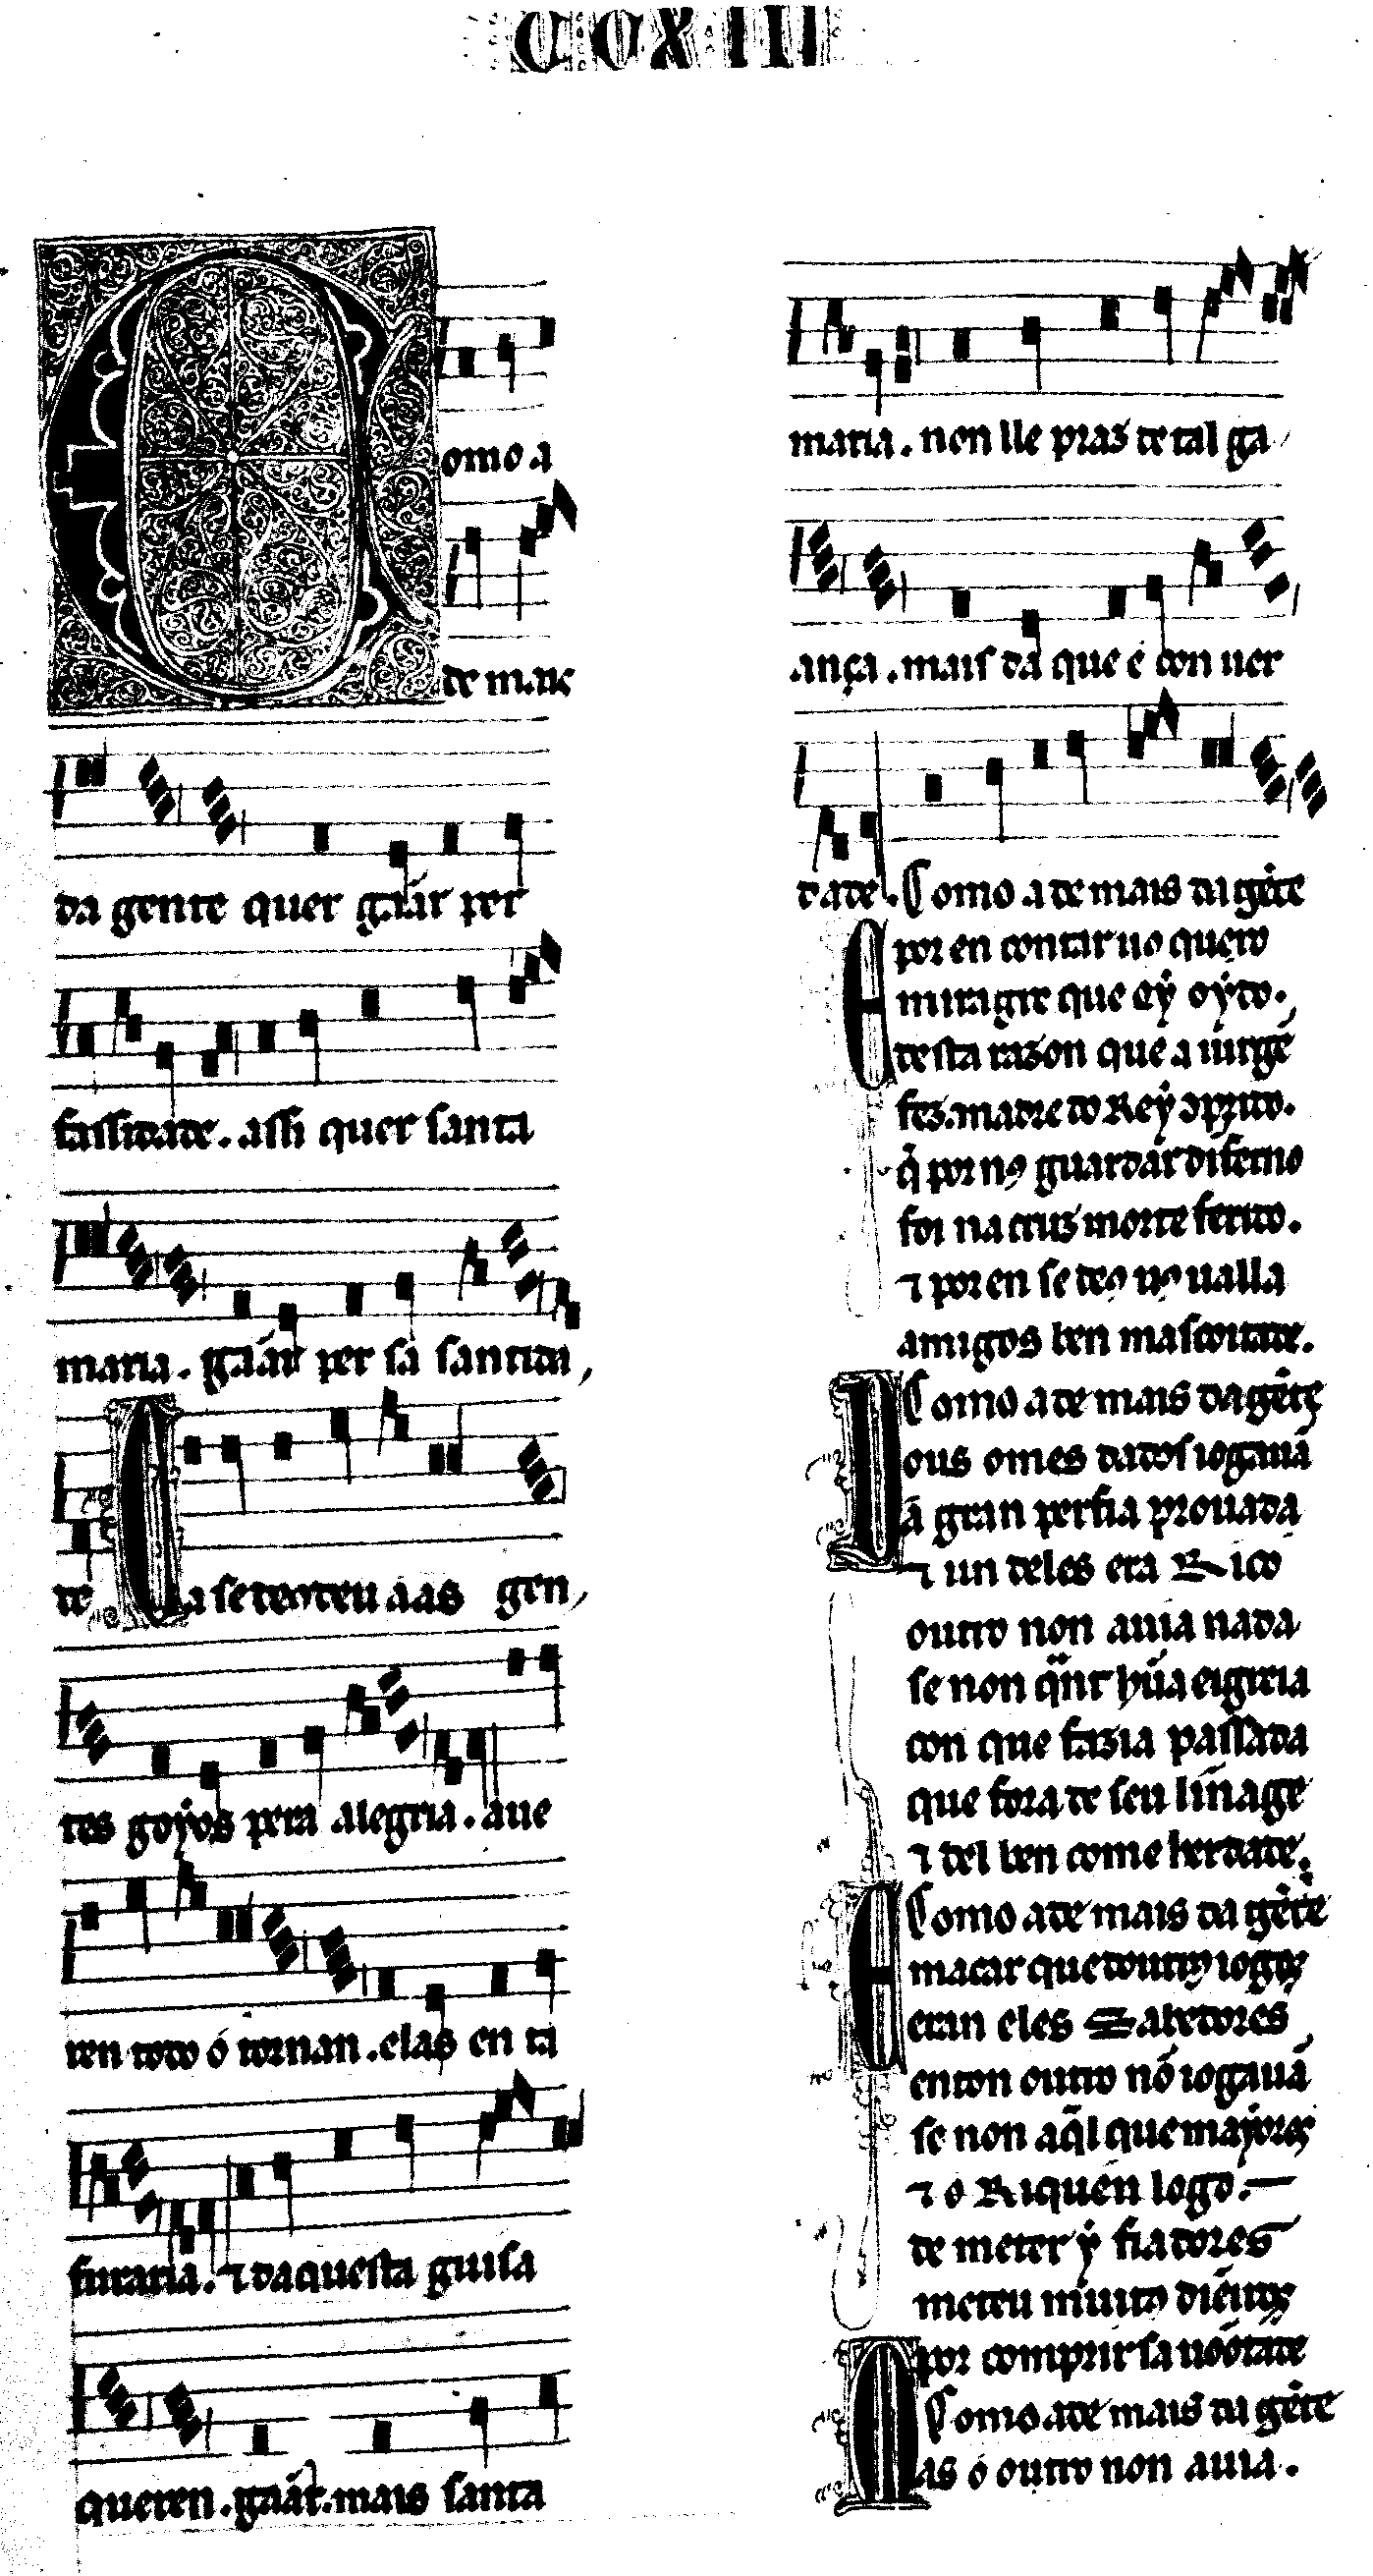 CCXIII
Como a
de mais
da gente quer gãar per
falssidade. assi quer santa
maria. gãar per sa santida,
de Ca se deo deu aas gen,
tes goyos pera alegria. aue
ren todo o tornan. elas en ta
furaria. ⁊ daquesta guisa
queren. gãar. mais santa
maria. non lle praz de tal ga
ança. mais da que é con uer
dade. Como a de mais da gẽte
E por en contar uos quero
miragre que ey oydo.
desta razon que a uirgẽ
fez. madre do Rey cõprido.
q̇ por nos guardar dĩferno
foi na cruz morte ferido.
⁊ por en se deo uos ualla
amigos ben mascoitade.
Como a de mais da gẽte
Dous omẽs dados iogauã
a gran perfia prouada
⁊ un deles era Rico
outro non auia nada
se non q̃nt hũa eigreia
con que fazia passada
que fora de seu linnage
⁊ del ben come herdade.
Como a de mais da gẽte
E macar que doutros iogos
eran eles sabedores
enton outro nõ iogauã
se non aq̃l que mayores
⁊ o Riquen logo.
de meter y fiadores
meteu muitos diẽiros
por comprir sa uoõtade
Como a de mais da gẽte
Mas o outro non auia.